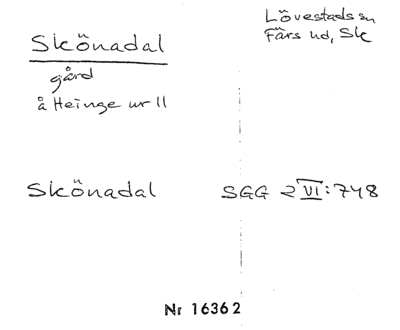 Skönadal
Lövestads sn
Färs hd, Sk
gård
å Heinge nr 11
Skönadal SGG 2 VI:748
Nr 16362